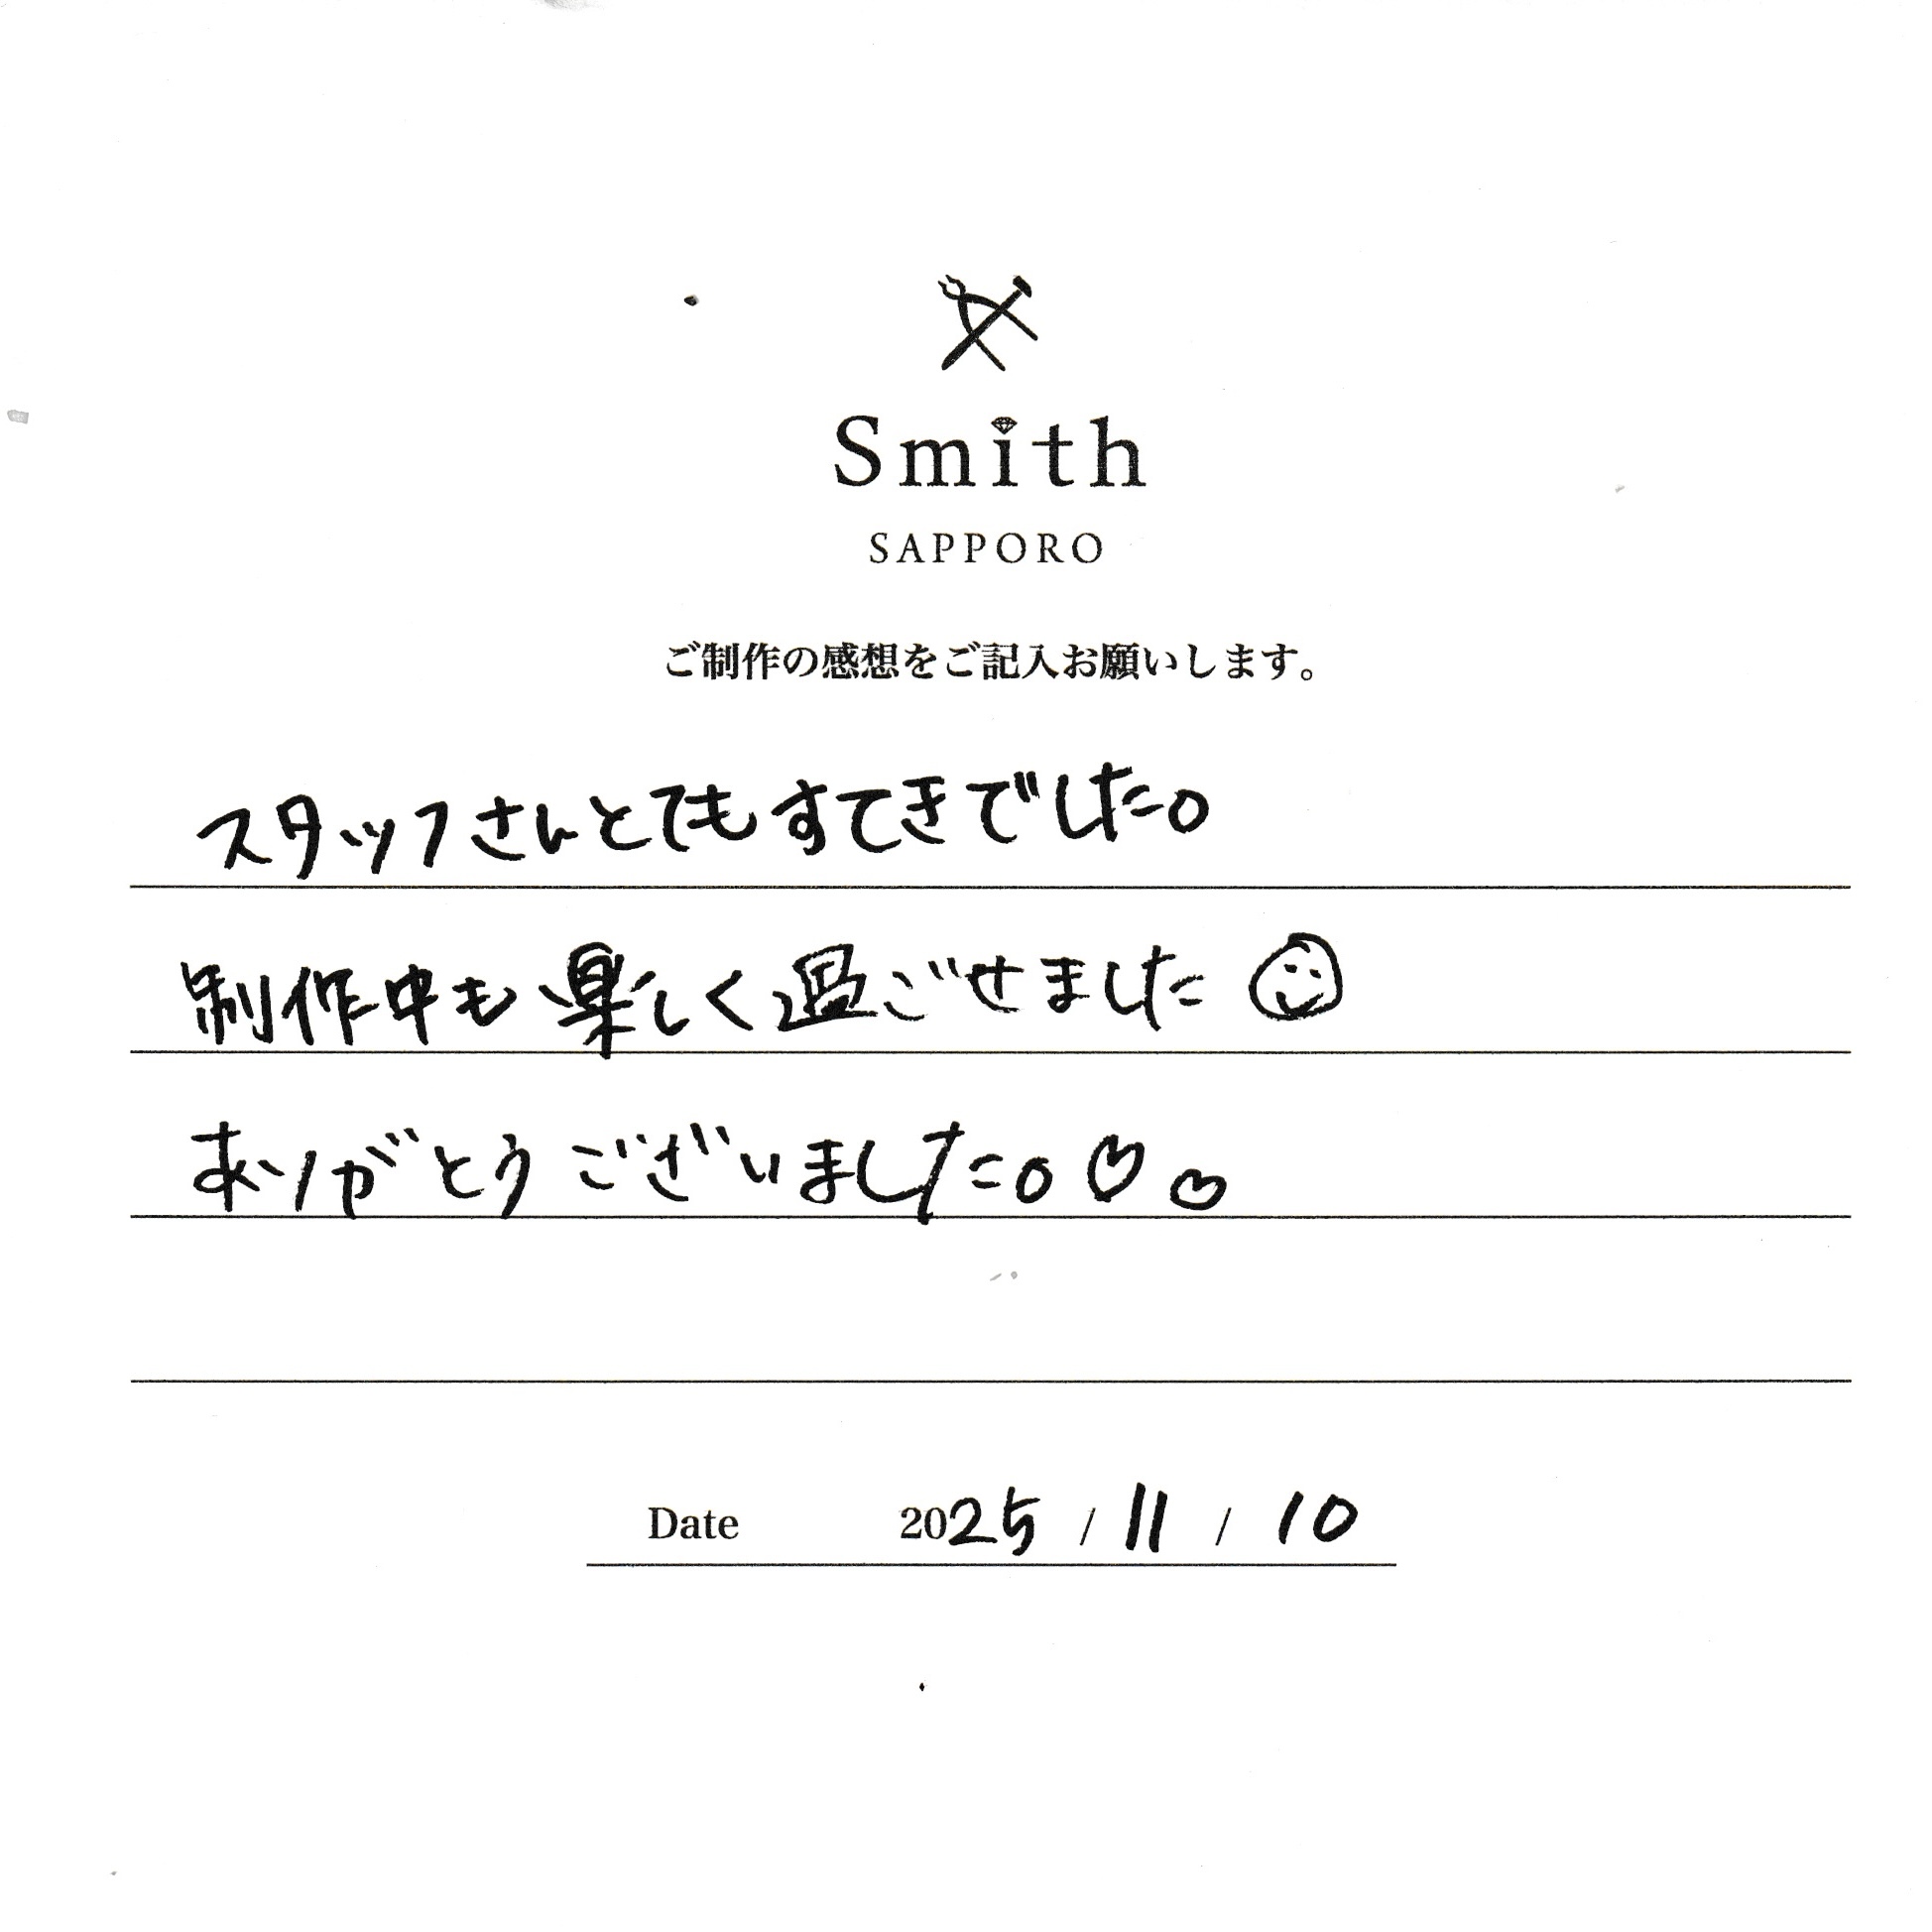 Smith
SAPPORO
ご制作の感想をご記入お願いします。
スタッフさんとてもすてきでした。
制作中も楽しく過ごせました
ありがとうございました。
Date 2025 / 11 / 10